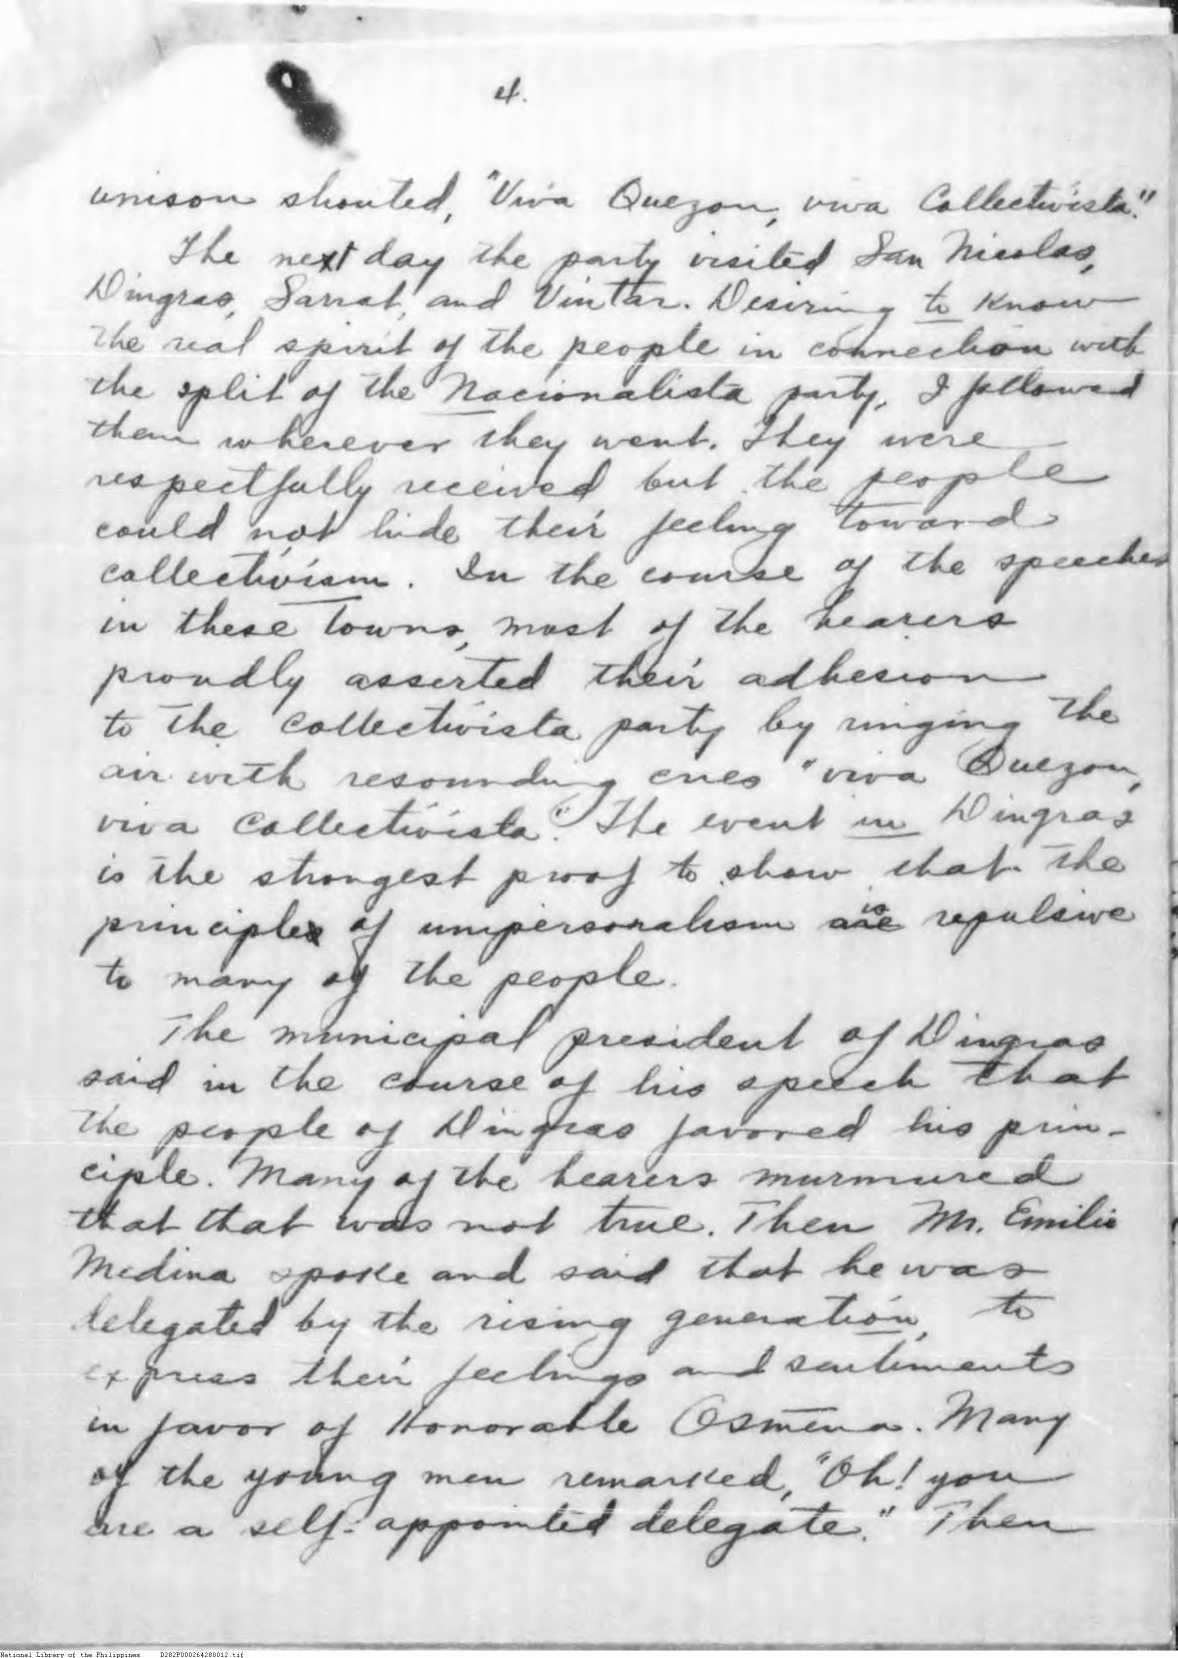 4.
unison shouted, "Viva Quezon, viva Collectivista."
The next day the party visited San Nicolas,
Dingras, Sarrat, and Vintar. Desiring to know
the real spirit of the people in connection with
the split of the Nacionalista party, I followed
them wherever they went. They were
respectfully received but the people
could not hide their feeling toward
collectivism. In the course of the speeches
in these towns, most of the hearers
proudly asserted their adhesion
to the Collectivista party by ringing the
air with resounding cries "viva Quezon,
viva Collectivista." The event in Dingras
is the strongest proof to show that the
principle of unipersonalism is repulsive
to many of the people.
The municipal president of Dingras
said in the course of his speech that
the people of Dingras favored his prin-
ciple. Many of the hearers murmured
that that was not true. Then Mr. Emilio
Medina spoke and said that he was
delegated by the rising generation, to
express their feelings and sentiments
in favor of Honorable Osmeña. Many
of the young men remarked, "Oh! you
are a self-appointed delegate." Then
National Library of the Philippines D282P000264280012.tif